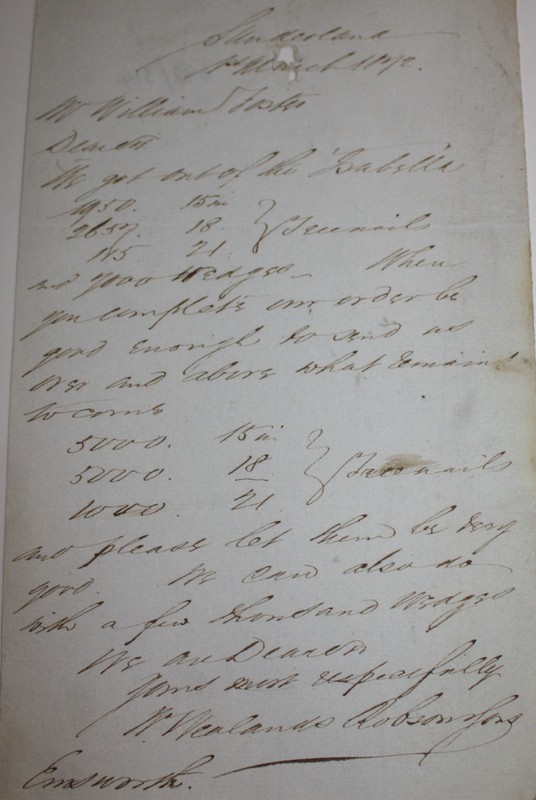 Sunderland
1st March 1872.
Mr William Foster
Dear Sir
We got out of the 'Isabella
1950. 15 in
2657. 18
115 21 } Treenails
and 9000 Wedges — When
you complete our order be
good enough to send us
over and above what remains
to come
5000. 15 in
5000. 18
1000. 21 } Treenails
and please let them be very
good. We can also do
with a few thousand Wedges
We are Dear Sir
Yours most respectfully
Wm Wealands Robson & Sons
Emsworth.